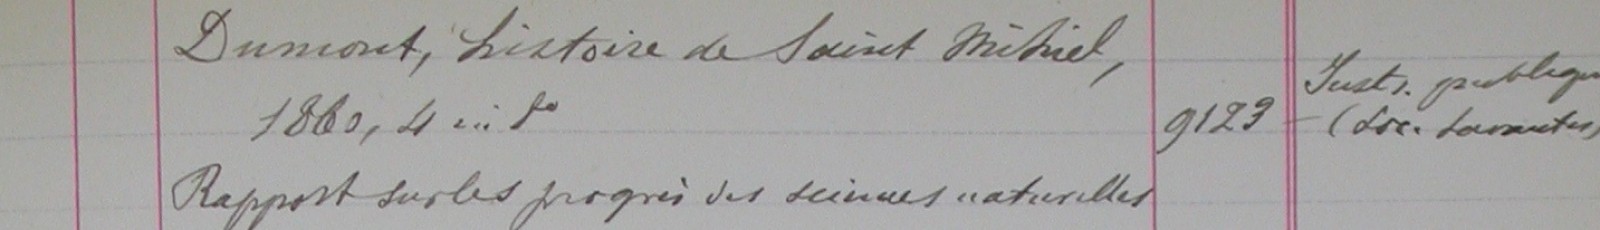 Dumont, histoire de Saint Mihiel,
1860, 4 in 8°
9123
Instr. publique
(Soc. savantes)
Rapport sur les progrès des sciences naturelles